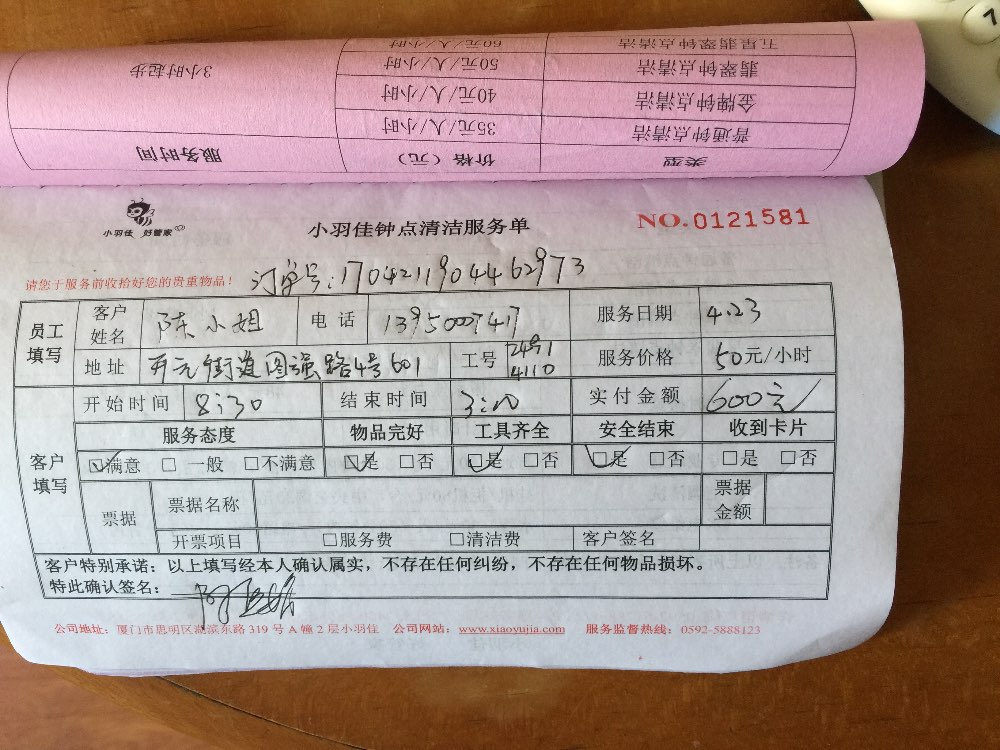 类型 价格（元） 服务时间
普通钟点清洁 35元/人/小时
金牌钟点清洁 40元/人/小时 3小时起步
翡翠钟点清洁 50元/人/小时
五星翡翠钟点清洁 60元/人/小时
小羽佳 好管家
小羽佳钟点清洁服务单
NO.0121581
请您于服务前收拾好您的贵重物品！
订单号:1704211904462973
员工填写 客户姓名 陈小姐 电话 13950007417 服务日期 4.23
地址 开元街道图强路4号601 工号 2491 4110 服务价格 50元/小时
开始时间 8:30 结束时间 3:00 实付金额 600元
客户填写 服务态度 物品完好 工具齐全 安全结束 收到卡片
☑满意 □一般 □不满意 ☑是 □否 ☑是 □否 ☑是 □否 □是 □否
票据 票据名称 票据金额
开票项目 □服务费 □清洁费 客户签名
客户特别承诺：以上填写经本人确认属实，不存在任何纠纷，不存在任何物品损坏。
特此确认签名：
公司地址：厦门市思明区湖滨东路319号A幢2层小羽佳 公司网站：www.xiaoyujia.com 服务监督热线：0592-5888123
7